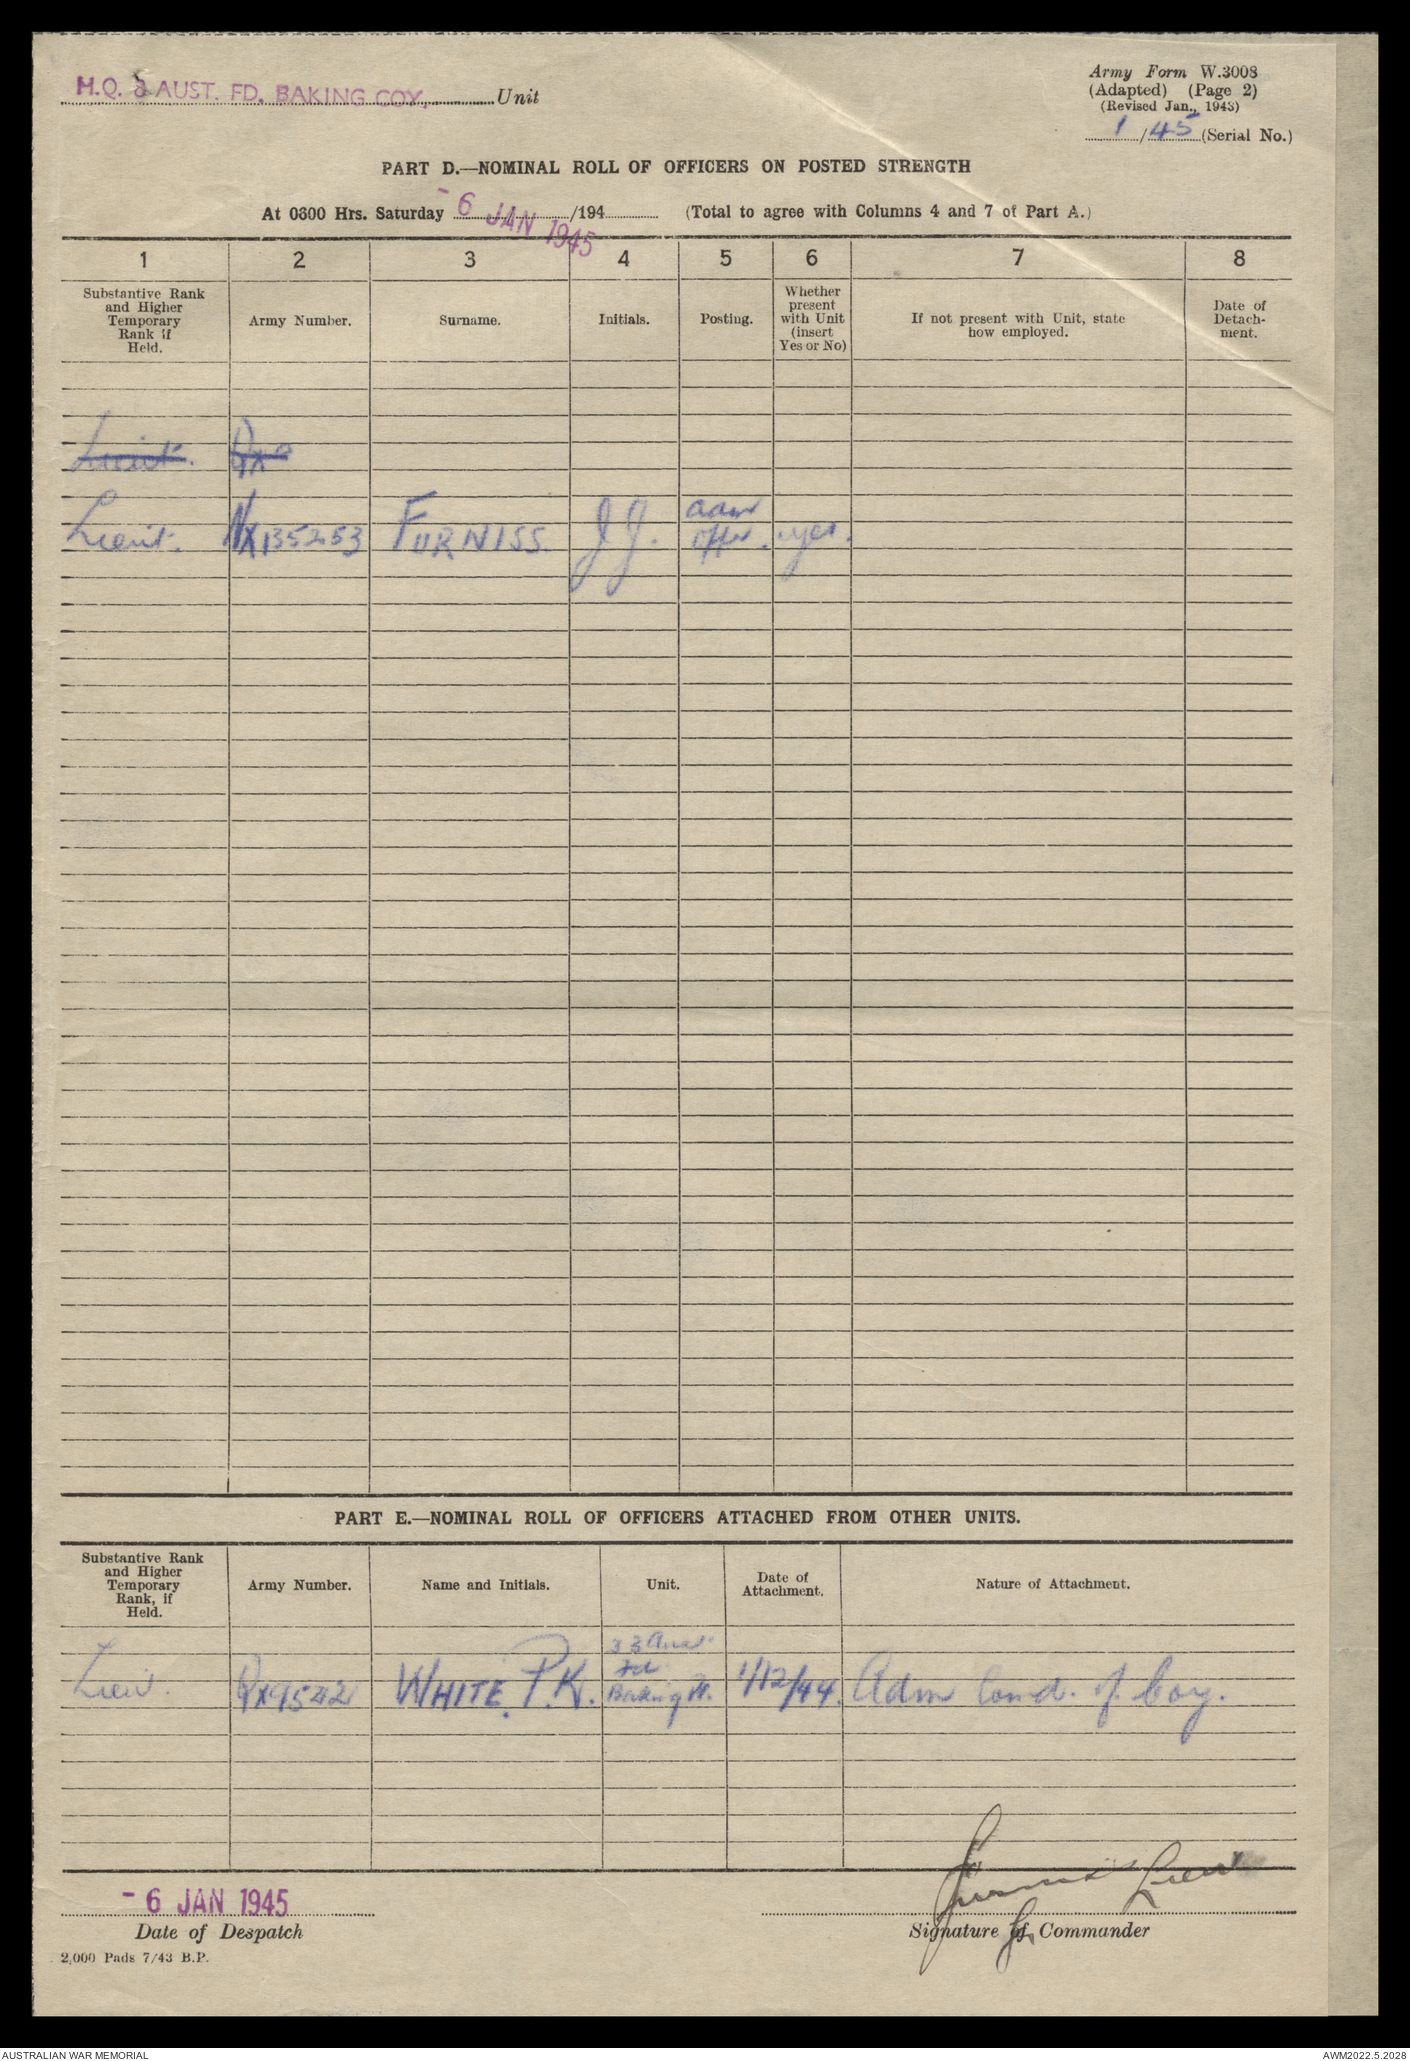 H.Q. 3 AUST. FD. BAKING COY. Unit
Army Form W.3008
(Adapted) (Page 2)
(Revised Jan., 1943)
1/45 (Serial No.)
PART D.—NOMINAL ROLL OF OFFICERS ON POSTED STRENGTH
At 0600 Hrs. Saturday -6 JAN 1945 /194 (Total to agree with Columns 4 and 7 of Part A.)
1 2 3 4 5 6 7 8
Substantive Rank and Higher Temporary Rank if Held.
Army Number.
Surname.
Initials.
Posting.
Whether present with Unit (insert Yes or No)
If not present with Unit, state how employed.
Date of Detach-ment.
Lieut. QX
Lieut. NX135253 FURNISS. J J. adm offr. yes.
PART E.—NOMINAL ROLL OF OFFICERS ATTACHED FROM OTHER UNITS.
Substantive Rank and Higher Temporary Rank, if Held.
Army Number.
Name and Initials.
Unit.
Date of Attachment.
Nature of Attachment.
Lieu. QX9542 WHITE. P.K. 33 Aust Fd Baking Pl. 1/12/44. Adm Comd. of Coy.
Furniss Lieut
-6 JAN 1945
Date of Despatch
Signature of Commander
2,000 Pads 7/43 B.P.
AUSTRALIAN WAR MEMORIAL
AWM2022.5.2028